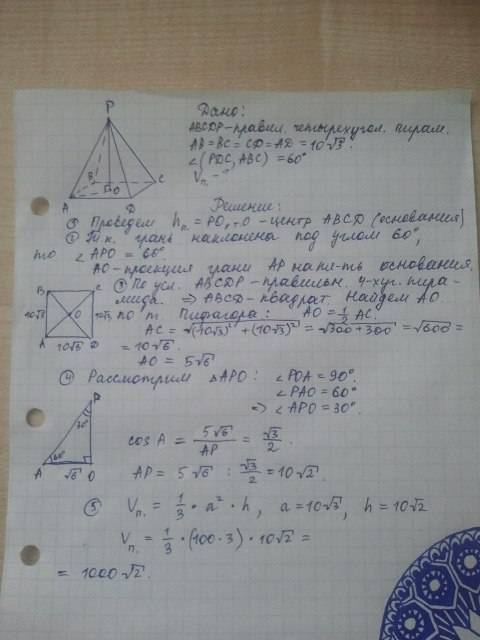 P
B
C
O
A
D
Дано:
ABCDP - правил. четырехугол. пирам.
AB = BC = CD = AD = 10√3.
∠(PDC, ABC) = 60°
Vп. - ?
Решение:
① Проведем hп. = PO, т.O - центр ABCD (основания)
② Т.к. грань наклонена под углом 60°,
то ∠APO = 60°.
AO - проекция грани AP на пл-ть основания.
③ По усл. ABCDP - правильн. 4-хуг. пира-
мида. ⇒ ABCD - квадрат. Найдем AO
по т. Пифагора: AO = 1/2 AC.
AC = √((10√3)² + (10√3)²) = √(300+300) = √600 =
= 10√6.
AO = 5√6
B
C
10√3
O
10√3
A
10√3
D
④ Рассмотрим △APO: ∠POA = 90°
∠PAO = 60°
⇒ ∠APO = 30°.
P
30°
60°
A
√6
O
cos A = 5√6/AP = √3/2.
AP = 5√6 : √3/2 = 10√2.
⑤ Vп. = 1/3 · a² · h, a = 10√3, h = 10√2
Vп. = 1/3 · (100 · 3) · 10√2 =
= 1000√2.